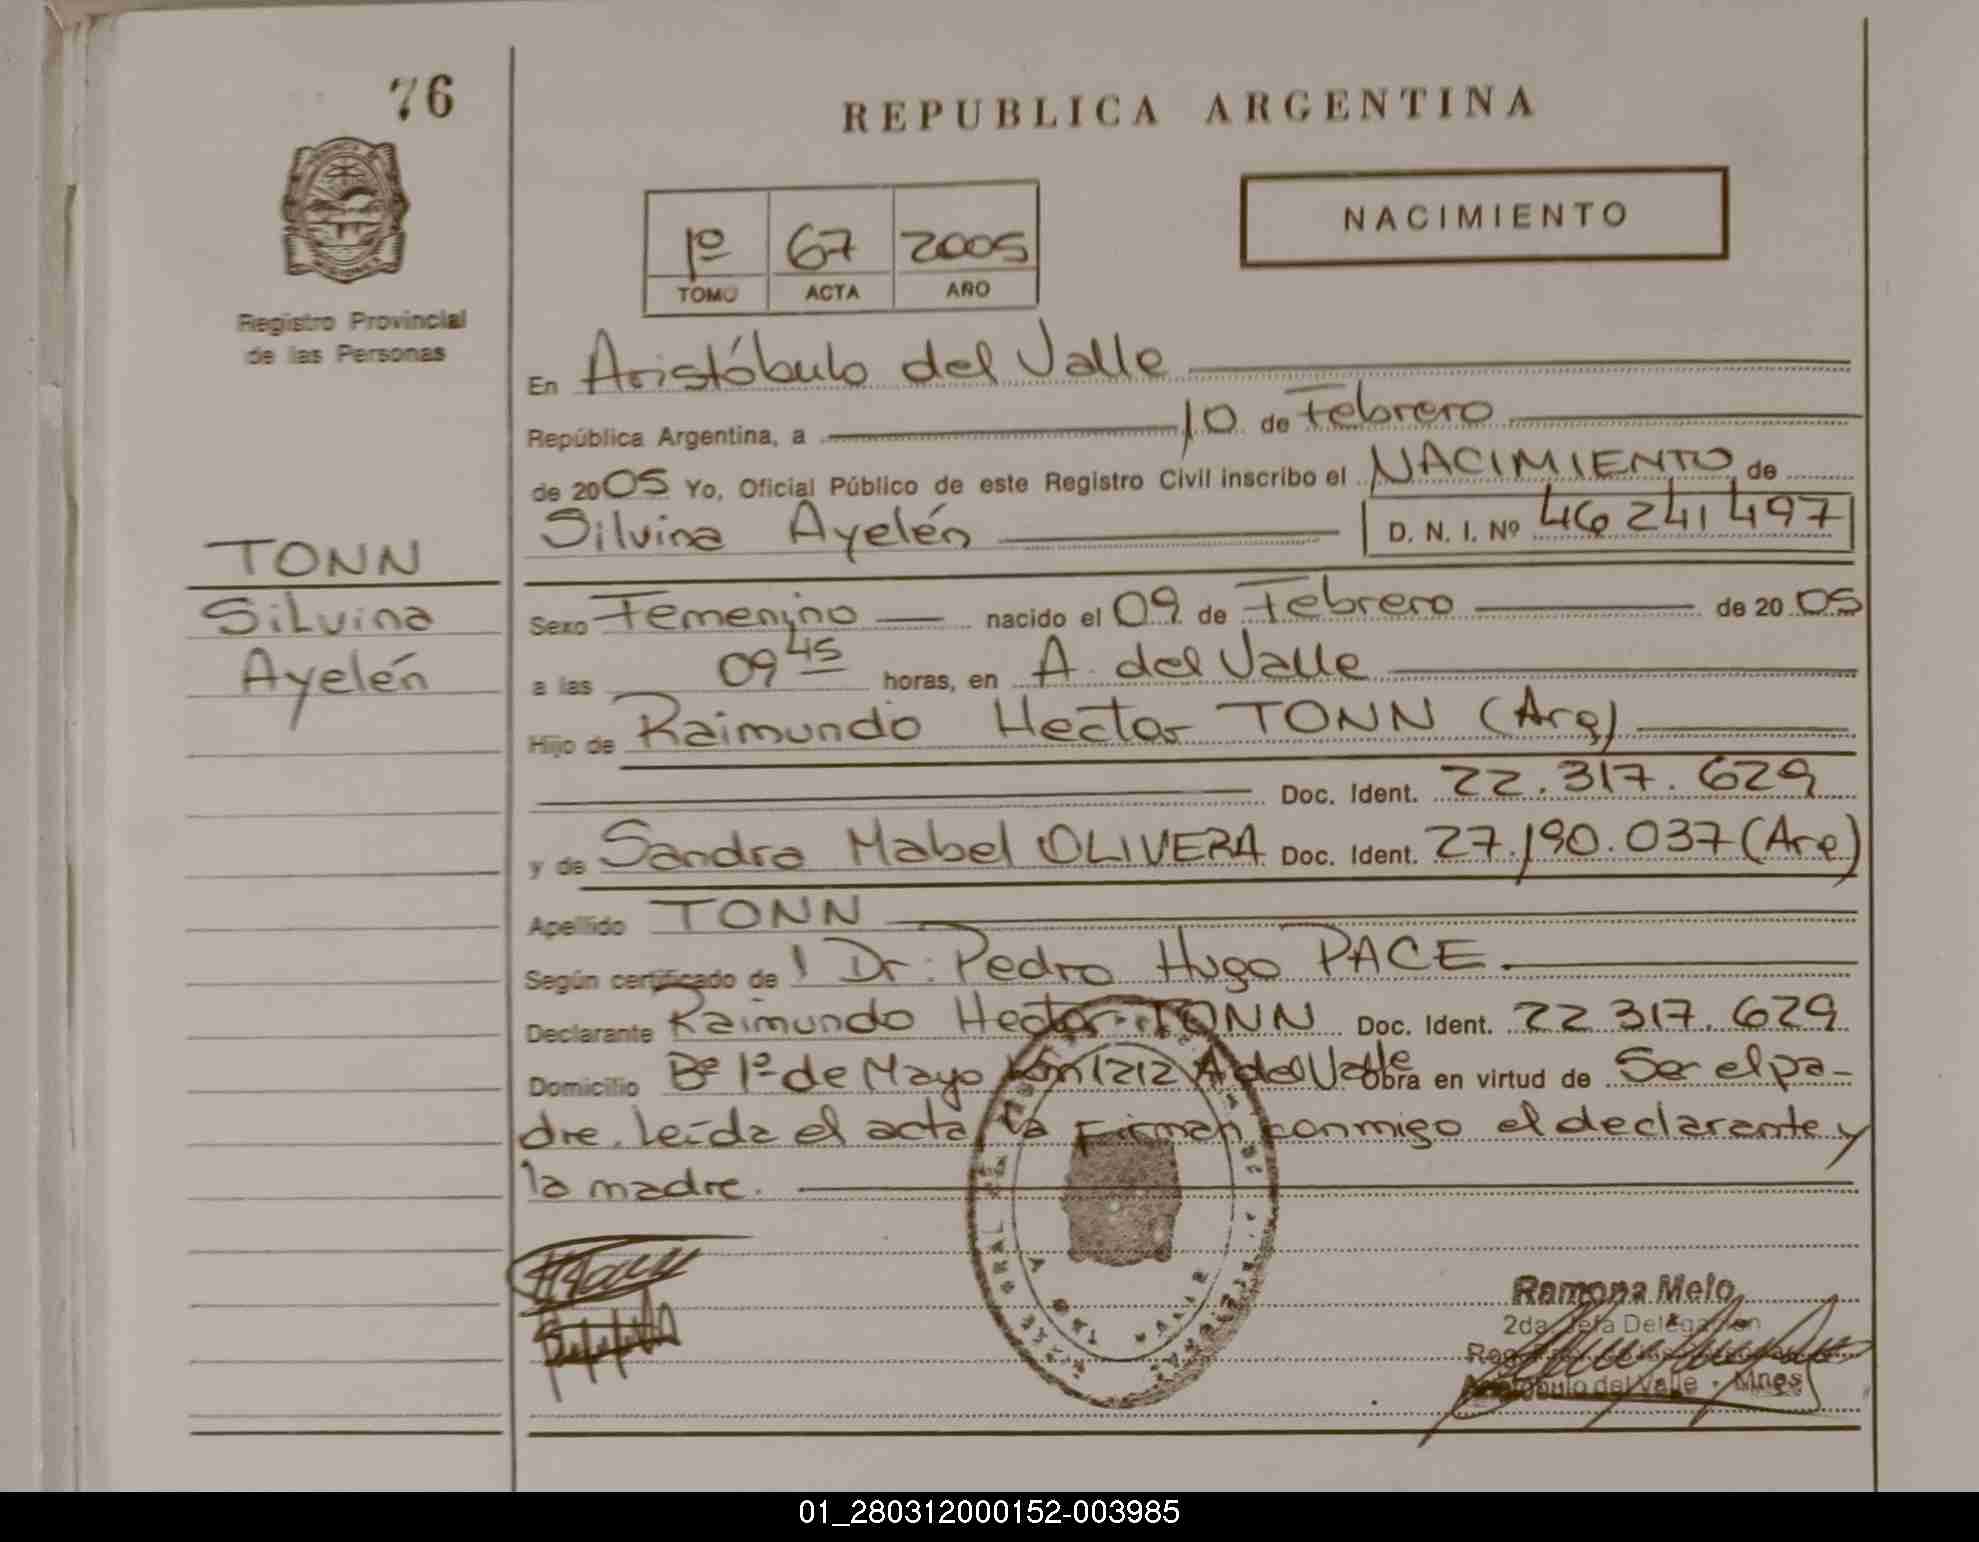 76
REPUBLICA ARGENTINA
NACIMIENTO
1º 67 2005
TOMO ACTA AÑO
Registro Provincial
de las Personas
TONN
Silvina
Ayelén
En Aristóbulo del Valle
República Argentina, a 10 de Febrero
de 2005 Yo, Oficial Público de este Registro Civil inscribo el NACIMIENTO de
Silvina Ayelén D. N. I. Nº 46 241 497
Sexo Femenino nacido el 09 de Febrero de 2005
a las 09 45 horas, en A. del Valle
Hijo de Raimundo Hector TONN (Arg)
Doc. Ident. 22.317.629
y de Sandra Mabel OLIVERA Doc. Ident. 27.190.037 (Arg)
Apellido TONN
Según certificado de l Dr. Pedro Hugo PACE
Declarante Raimundo Hector TONN Doc. Ident. 22 317.629
Domicilio Bº 1º de Mayo Km 1212 A del Valle Obra en virtud de Ser el pa-
dre. Leída el acta la Firman conmigo el declarante y
la madre.
Ramona Melo
2da. Jefa Delegación
Aristóbulo del Valle - Mnes
01_280312000152-003985